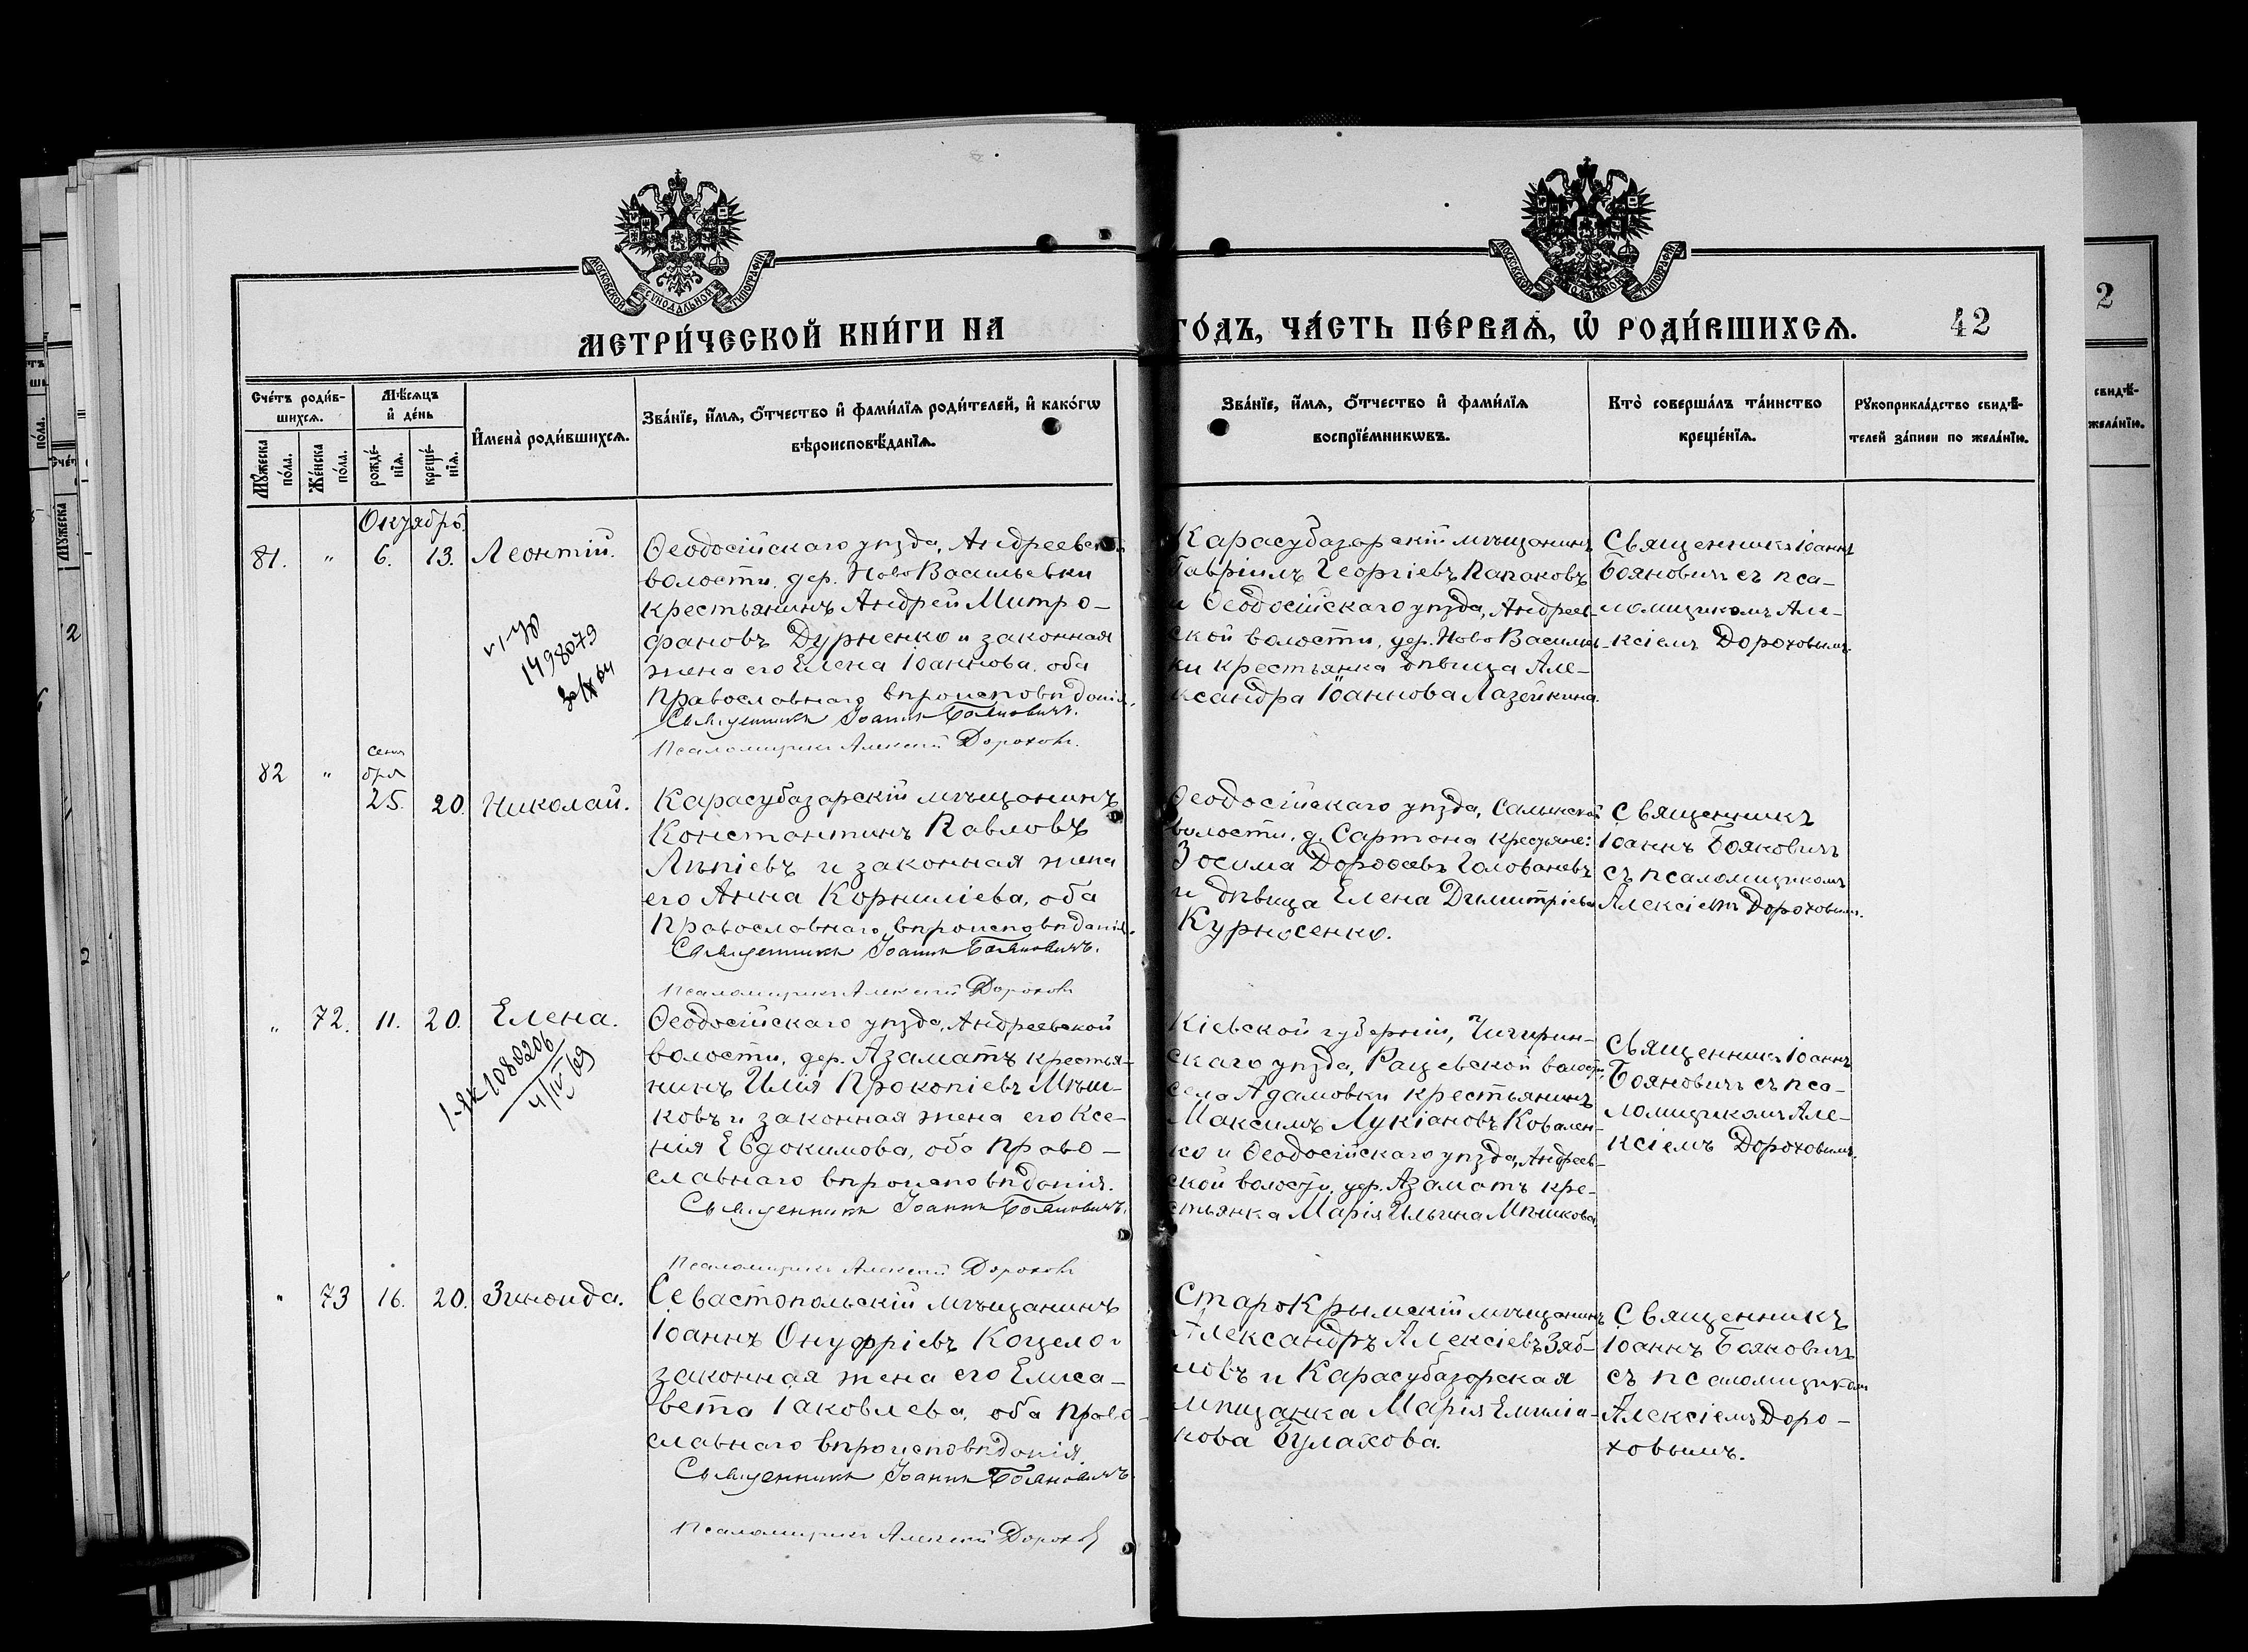 МОСКОВСКОЙ СѴНОДАЛЬНОЙ ТИПОГРАФІИ
МЕТРИ́ЧЕСКОЙ КНИ́ГИ НА
ГО́ДЪ, ЧА́СТЬ ПЕ́РВАѦ, Ѡ҆ РОДИ́ВШИХСѦ.
42
Сче́тъ роди́в-
шихсѧ.
Мѣ́сѧцъ
и҆ де́нь
Мꙋ́жеска
по́ла.
Же́нска
по́ла.
рожде́-
нїѧ.
креще́-
нїѧ.
И҆мена̀ роди́вшихсѧ.
Зва́нїе, и҆́мѧ, ѻ҆́тчество и҆ фами́лїѧ роди́телей, и҆ како́гѡ
вѣроисповѣ́данїѧ.
Зва́нїе, и҆́мѧ, ѻ҆́тчество и҆ фами́лїѧ
воспрїе́мникѡвъ.
Кто̀ соверша́лъ та́инство
креще́нїѧ.
Рꙋкоприкла́дство свидѣ́-
телей за́писи по жела́нїю.
Октябрь.
81. " 6. 13. Леонтій.
Ѳеодосійскаго уѣзда, Андреевской
волости, дер. НовоВасильевки
крестьянинъ Андрей Митро-
фановъ Дурненко и законная
жена его Елена Іоаннова, оба
православнаго вѣроисповѣданія.
Священникъ Іоаннъ Бояновичъ.
Псаломщикъ Алексій Дороховъ.
Карасубазарскій мѣщанинъ
Гавріилъ Георгіевъ Папаковъ
и Ѳеодосійскаго уѣзда, Андреев-
ской волости, дер. НовоВасильев-
ки крестьянка дѣвица Але-
ксандра Іоаннова Лазейкина.
Священникъ Іоаннъ
Бояновичъ съ пса-
ломщикомъ Але-
ксіемъ Дороховымъ.
1498079
82 " Сентя
бря
25. 20. Николай.
Карасубазарскій мѣщанинъ
Константинъ Павловъ
Лѣпіевъ и законная жена
его Анна Корниліева, оба
православнаго вѣроисповѣданія.
Священникъ Іоаннъ Бояновичъ.
Псаломщикъ Алексій Дороховъ
Ѳеодосійскаго уѣзда, Салынской
волости, д. Сартана крестьяне:
Зосима Дороѳеевъ Голованевъ
и дѣвица Елена Димитріева
Курносенко.
Священникъ
Іоаннъ Бояновичъ
съ псаломщикомъ
Алексіемъ Дороховымъ.
" 72. 11. 20. Елена.
1-ЯК 1080206
4/IV 69
Ѳеодосійскаго уѣзда, Андреевской
волости, дер. Азаматъ крестья-
нинъ Илія Прокопіевъ Мѣш-
ковъ и законная жена его Ксе-
нія Евдокимова, оба право-
славнаго вѣроисповѣданія.
Священникъ Іоаннъ Бояновичъ.
Псаломщикъ Алексій Дороховъ
Кіевской губерніи, Чигирин-
скаго уѣзда, Рацевской волости,
села Адамовки крестьянинъ
Максимъ Лукіановъ Ковален-
ко и Ѳеодосійскаго уѣзда, Андреев-
ской волости, дер. Азаматъ кре-
стьянка Марія Ильина Мѣшкова.
Священникъ Іоаннъ
Бояновичъ съ пса-
ломщикомъ Але-
ксіемъ Дороховымъ.
" 73 16. 20. Зинаида.
Севастопольскій мѣщанинъ
Іоаннъ Онуфріевъ Коцело и
законная жена его Елиса-
вета Іаковлева, оба право-
славнаго вѣроисповѣданія.
Священникъ Іоаннъ Бояновичъ.
Псаломщикъ Алексій Дороховъ
СтароКрымскій мѣщанинъ
Александръ Алексіевъ Зяб-
ловъ и Карасубазарская
мѣщанка Марія Емиліа-
нова Булахова.
Священникъ
Іоаннъ Бояновичъ
съ псаломщикомъ
Алексіемъ Доро-
ховымъ.